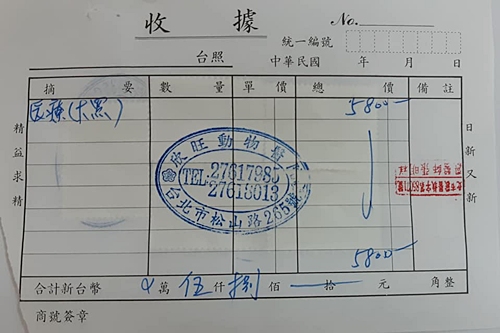 收 據 No.
統一編號
台照 中華民國 年 月 日
摘 要 數 量 單 價 總 價 備 註
医療(大黑) 5800-
精益求精
日新又新
欣旺動物醫
TEL:27617985
27618013
台北市松山路265號
5800-
合計新台幣 萬 伍 仟 捌 佰 拾 元 角 整
商號簽章